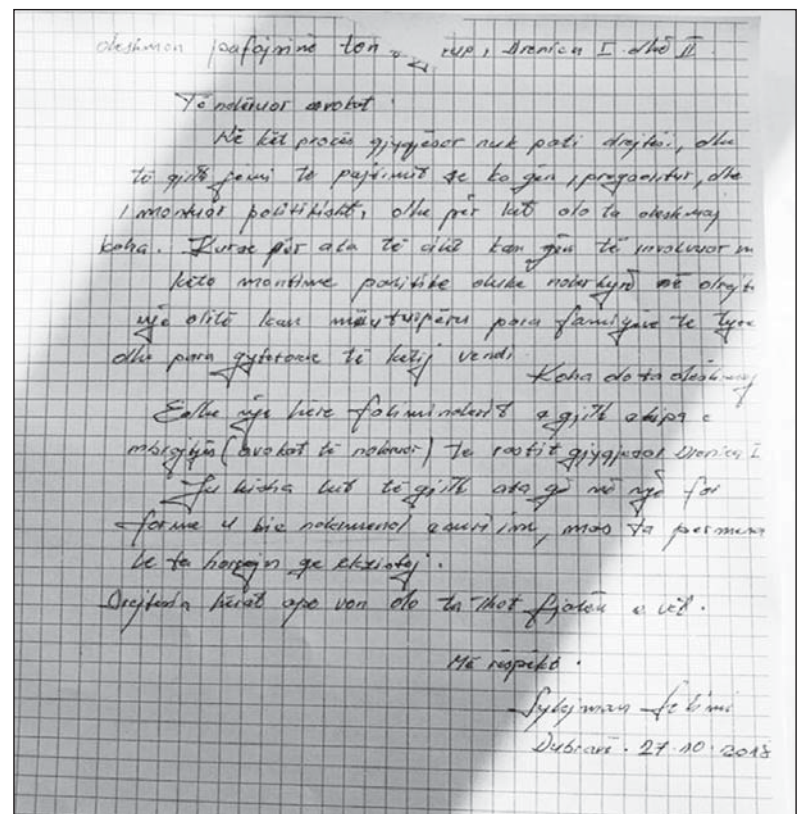 dëshmon pafajsinë ton grup, Drenica I dhe II.
Të nderuar avokat.
Në kët procës gjygjësor nuk pati drejtësi, dhe
të gjith jemi të pafajshëm se ka qën i pregaditur, dhe
i montuar politikisht, dhe për kët do ta dëshmoj
koha. Kurse për ata të cilët kan qën të involvuar në
këto montime politike duke ndërhyrë në drejt
një ditë kan para familjeve te tyre
dhe para qytetarve të këtij vendi.
Koha do ta dëshmoj
Edhe një herë faliminderit e gjith ekipa e
mbrojtjes (avokat të nderuar) te rastit gjygjësor Drenica I
Ju kisha lut të gjith ata që në një far
forme u bie ndërmend emri im, mos ta permend
le ta harrojn qe ekzistoj.
Drejtësia herët apo von do ta thot fjalën e vët.
Më respekt.
Sylejman Selimi
Dubravë. 27.10.2018